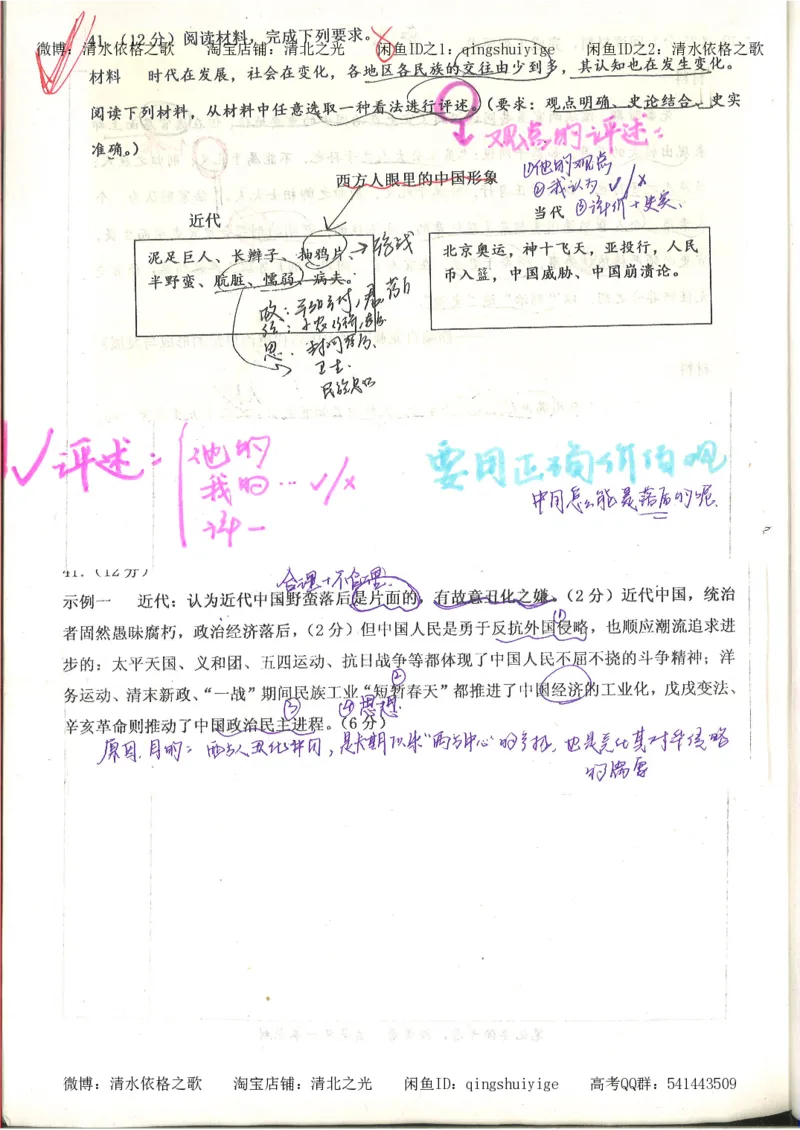 41.（12分）阅读材料，完成下列要求。
微博：清水依格之歌 淘宝店铺：清北之光 闲鱼ID之1：qingshuiyige 闲鱼ID之2：清水依格之歌
材料 时代在发展，社会在变化，各地区各民族的交往由少到多，其认知也在发生变化。
阅读下列材料，从材料中任意选取一种看法进行评述。（要求：观点明确、史论结合、史实
准确。）
观点的评述：
①他的观点
②我认为 √/×
③评价+史实、
西方人眼里的中国形象
近代
当代
泥足巨人、长辫子、抽鸦片、
半野蛮、肮脏、懦弱、病夫。
北京奥运，神十飞天，亚投行，人民
币入篮，中国威胁、中国崩溃论。
政：
经：小农
思：
卫生.
评述：
他的
我的…√/×
评一
要用正确价值观
中国怎么能是落后的呢.
41.（12分）
合理+不合理.
示例一 近代：认为近代中国野蛮落后是片面的，有故意丑化之嫌。（2分）近代中国，统治
者固然愚昧腐朽，政治经济落后，（2分）但中国人民是勇于反抗外国侵略，也顺应潮流追求进
步的：太平天国、义和团、五四运动、抗日战争等都体现了中国人民不屈不挠的斗争精神；洋
务运动、清末新政、“一战”期间民族工业“短暂春天”都推进了中国经济的工业化，戊戌变法、
辛亥革命则推动了中国政治民主进程。（6分）
①
②
③
④思想.
原因.目的：西方人丑化中国，是长期以来“西方中心”的 也是美化其对华侵略
的需要
微博：清水依格之歌 淘宝店铺：清北之光 闲鱼ID：qingshuiyige 高考QQ群：541443509